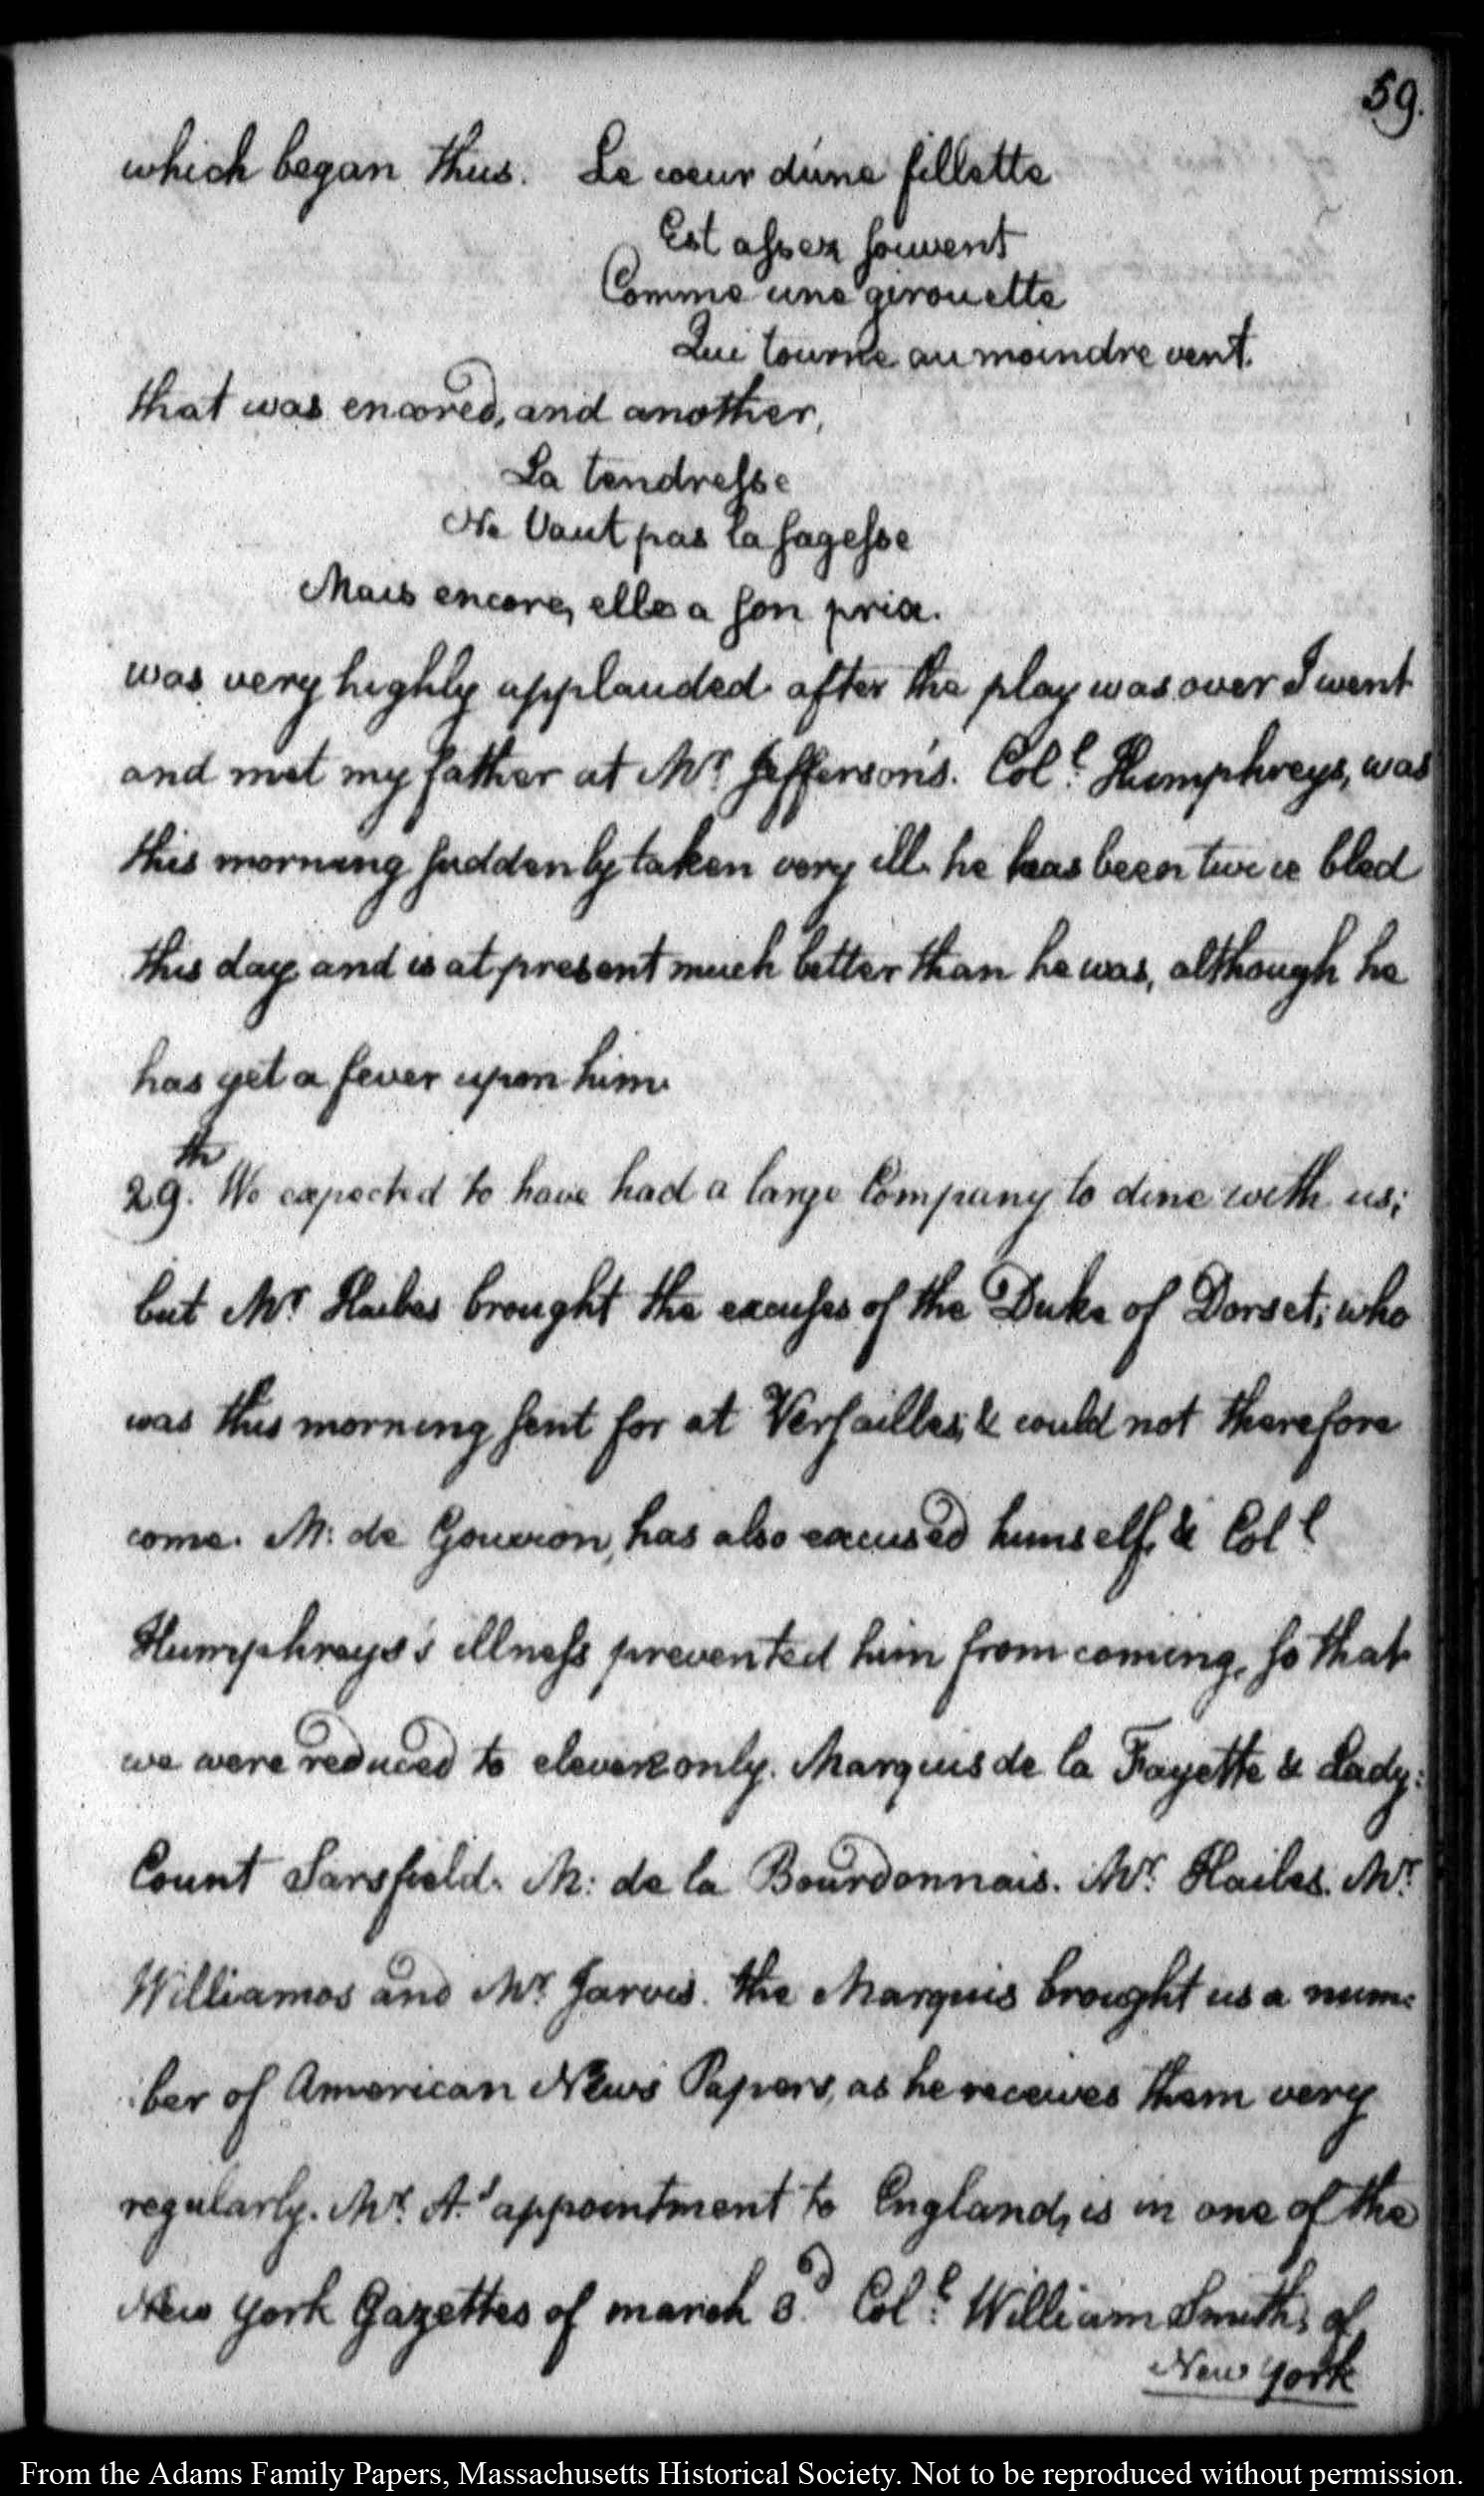 59.
which began thus. Le coeur d'une fillette
Est assez souvent
Comme une girouette
Qui tourne au moindre vent.
that was encored, and another,
La tendresse
Ne Vaut pas la sagesse
Mais encore, elle a son prix.
was very highly applauded. after the play was over I went
and met my father at Mr. Jefferson's. Coll. Humphreys, was
this morning suddenly taken very ill. he has been twice bled
this day and is at present much better than he was, although he
has yet a fever upon him.
29th. We expected to have had a large Company to dine with us;
but Mr. Hailes brought the excuses of the Duke of Dorset; who
was this morning sent for at Versailles; & could not therefore
come. M: de Gouvion, has also excused himself, & Coll
Humphreys's illness prevented him from coming, so that
we were reduced to eleven only. Marquis de la Fayette & Lady:
Count Sarsfield. M: de la Bourdonnais. Mr. Hailes. Mr.
Williamos and Mr. Jarvis. the Marquis brought us a num:
:ber of American News Papers, as he receives them very
regularly. Mr. A.'s appointment to England, is in one of the
New York Gazettes of march 3d. Coll. William Smith, of
New York
From the Adams Family Papers, Massachusetts Historical Society. Not to be reproduced without permission.